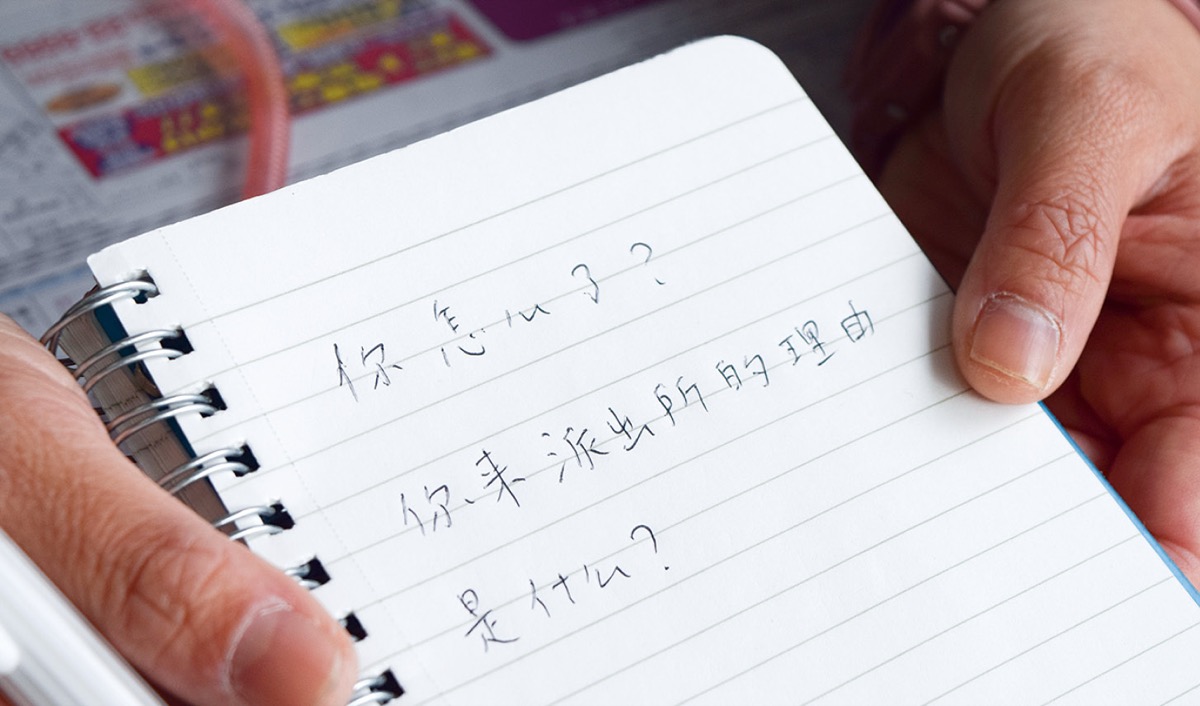 你怎么了?
你来派出所的理由
是什么?